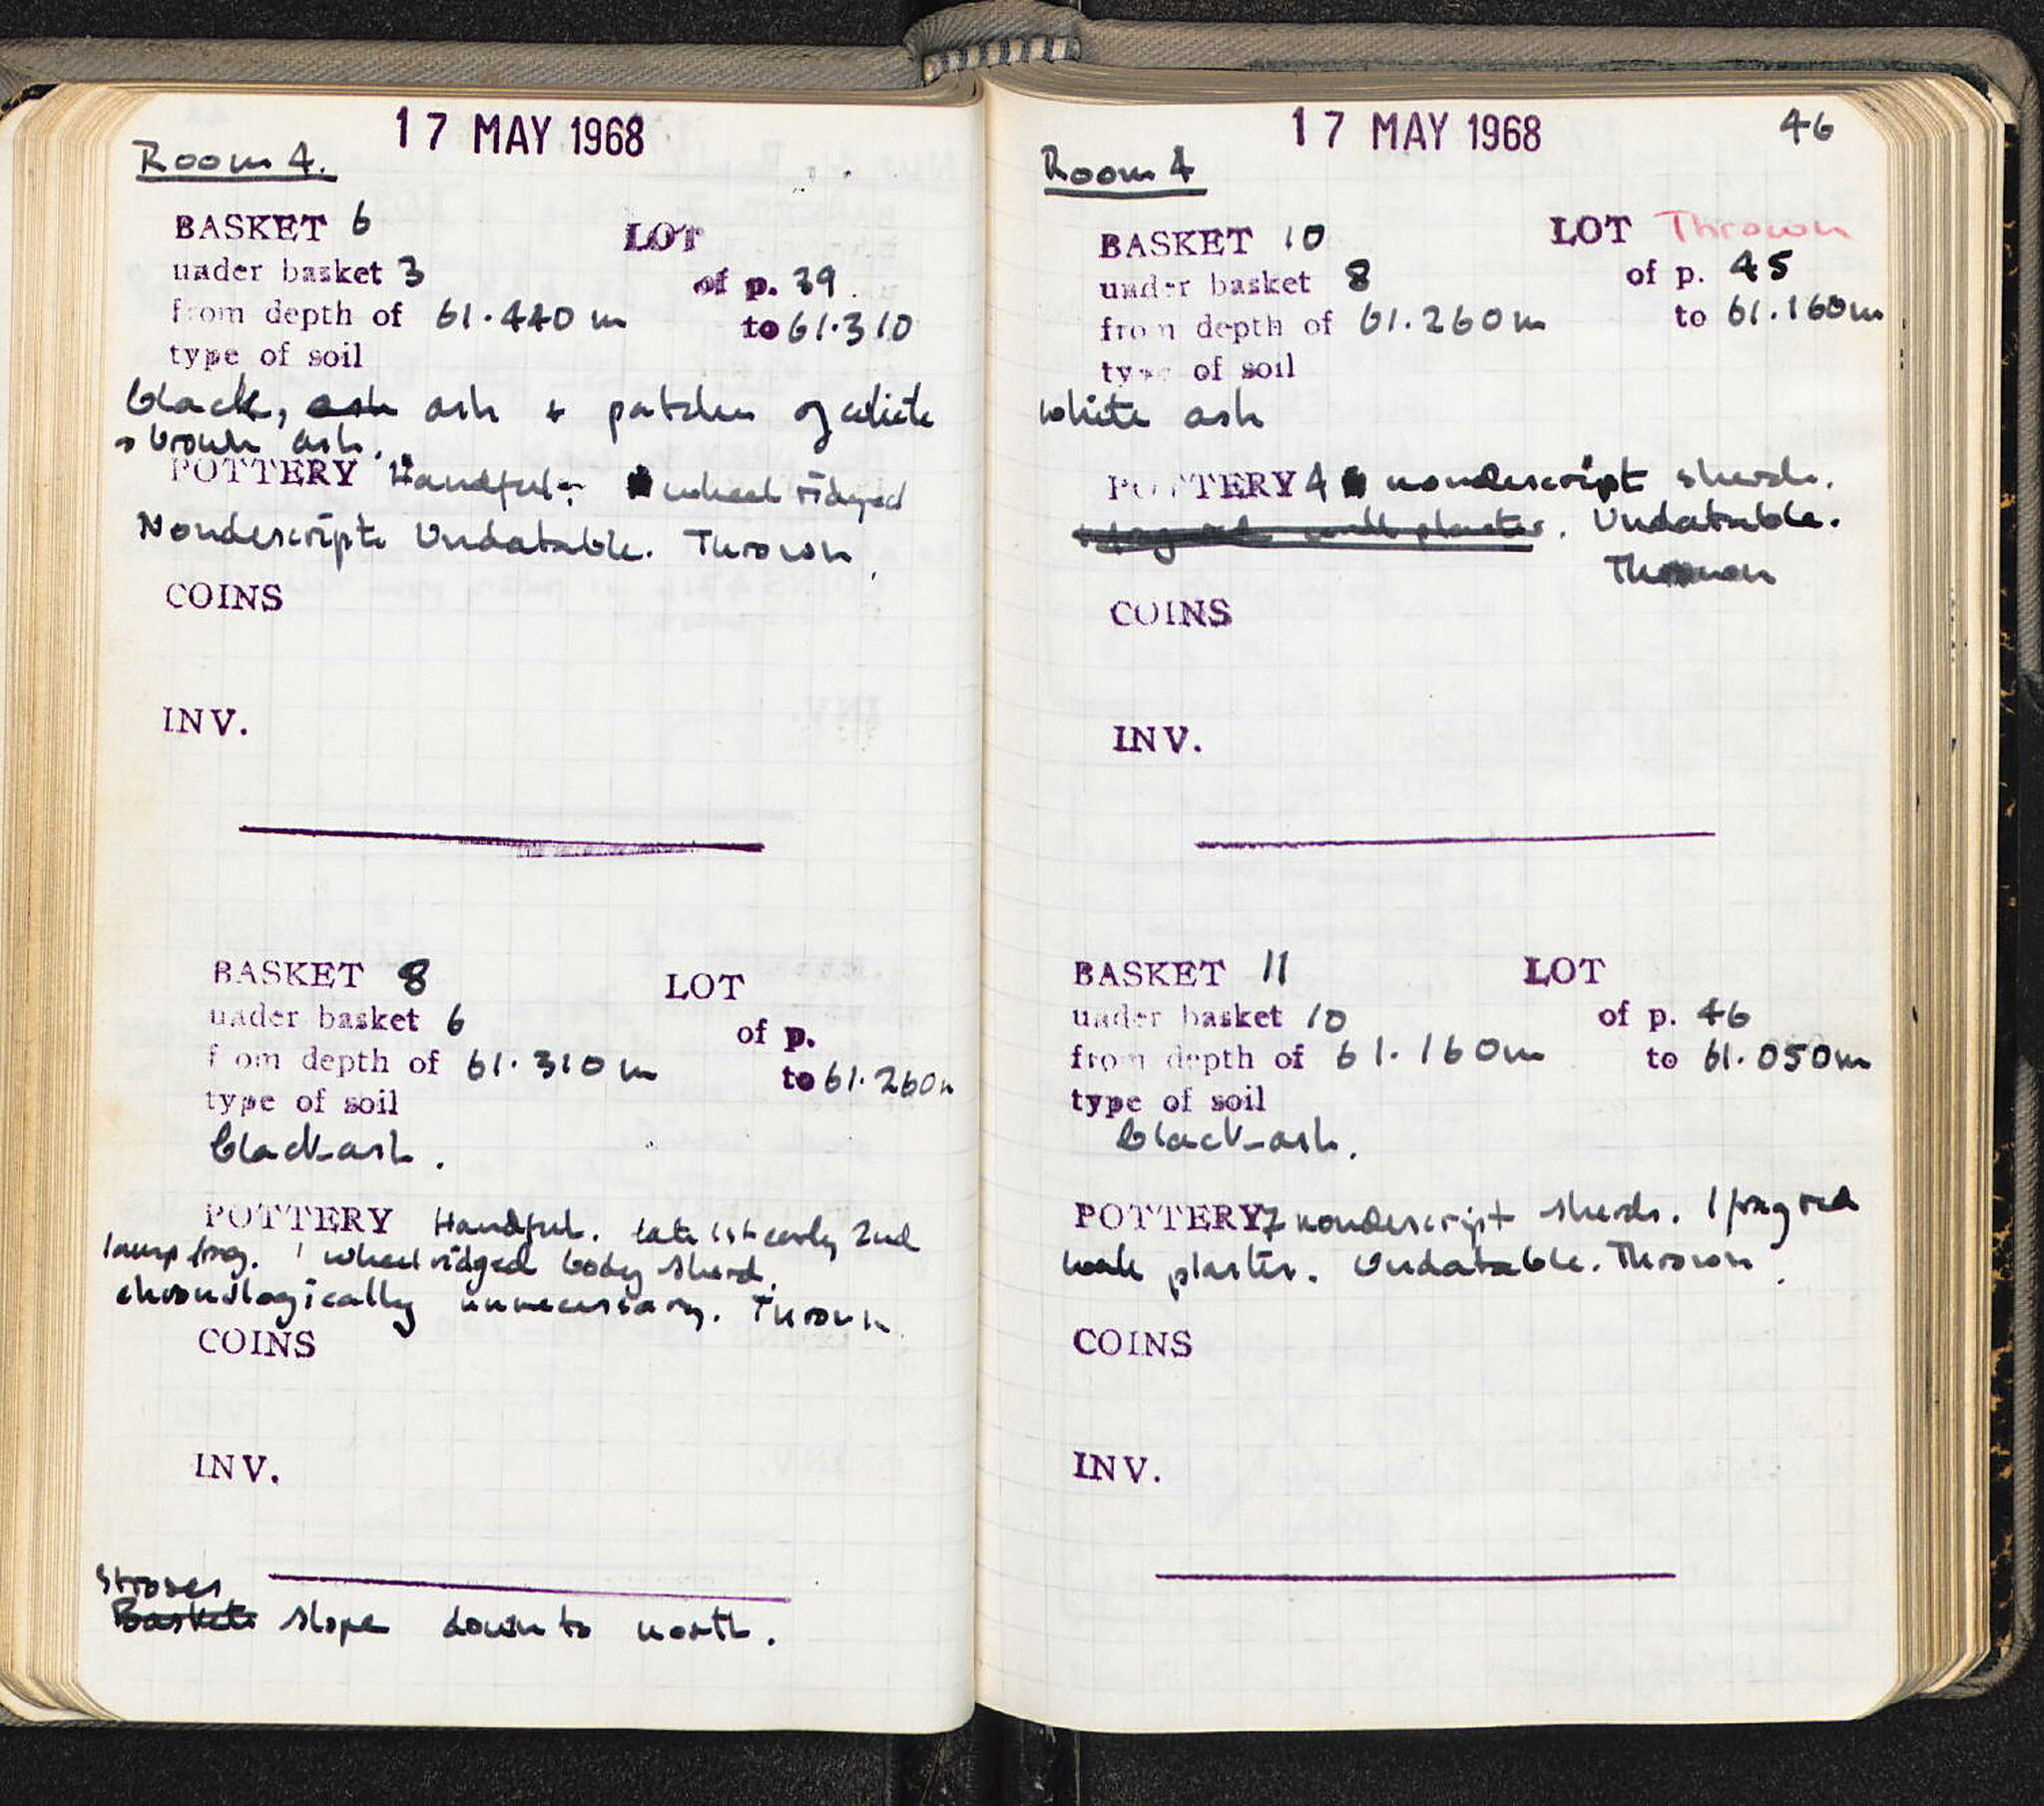 17 MAY 1968
Room 4.
BASKET 6 LOT
under basket 3 of p. 39.
from depth of 61.440 m to 61.310
type of soil
black, ash ash + patches of white
+ brown ash.
POTTERY Handful: wheel ridged
Nondescript. Undatable. Thrown.
COINS
INV.
BASKET 8 LOT
under basket 6 of p.
from depth of 61.310 m to 61.260m
type of soil
black ash.
POTTERY Handful. late 1st early 2nd
lamp frag. 1 wheel ridged body sherd.
chronologically unnecessary. Thrown.
COINS
INV.
Stroses
Baskets slope down to north.
17 MAY 1968 46
Room 4
BASKET 10 LOT Thrown
under basket 8 of p. 45
from depth of 61.260m to 61.160m
type of soil
white ash
POTTERY 4 nondescript sherds.
wall plaster. Undatable.
Thrown
COINS
INV.
BASKET 11 LOT
under basket 10 of p. 46
from depth of 61.160m to 61.050m
type of soil
black ash.
POTTERY 7 nondescript sherds. 1 frag red
wall plaster. Undatable. Thrown.
COINS
INV.